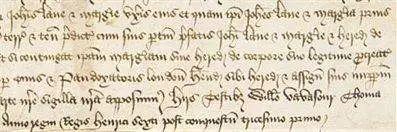 Johes lane & Margie ux̃is eius et quam ip̃i Johes lane & Margia prius
terr̃ & ten̄ p̃dict cum suis ptin̄ p̃fatis Joh̃i lane & Margie & hered de
si contingat ip̃am Margiam sine hered de corpore suo legitime procreat
& Pandoxatoris london̄ Hend sibi hered & assign̄ suis
nr̃e sigilla nr̃a apposuim⁹ Hijs Testib⁹ Willo Vavasour Thoma
Anno regni Regis Henrici sexti post conquestum tricesimo primo